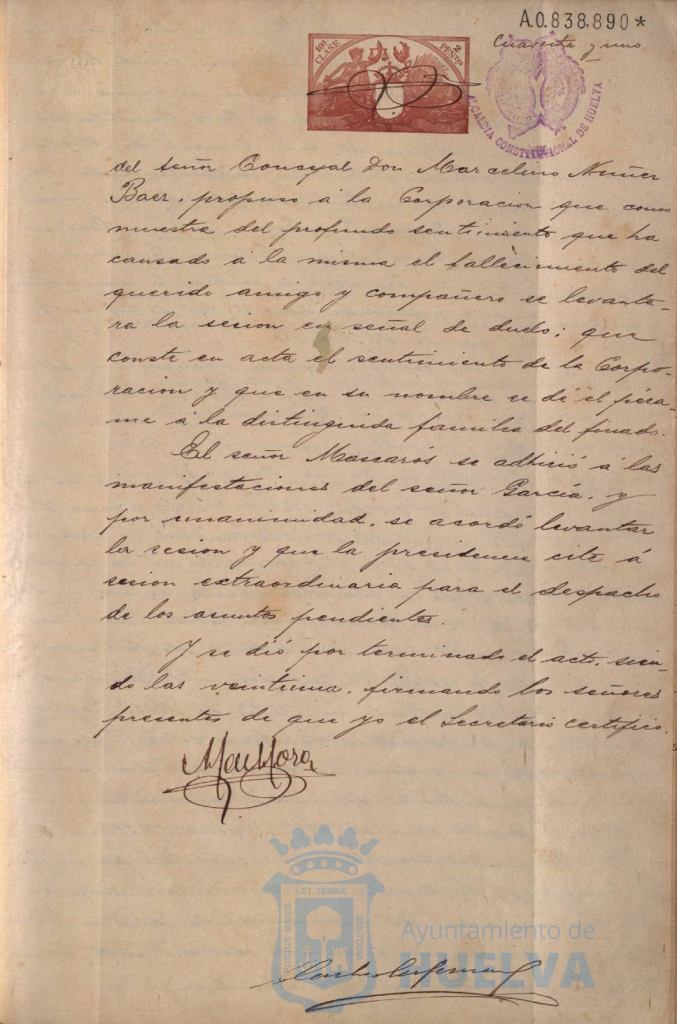 A.0.838.890*
Cuarenta y uno
10ª CLASE
2 PESETAS
ALCALDIA CONSTITUCIONAL DE HUELVA
del señor Concejal Don Marcelino Nuñez
Baez, propuso á la Corporacion que como
muestra del profundo sentimiento que ha
causado á la misma el fallecimiento del
querido amigo y compañero se levanta-
ra la sesion en señal de duelo; que
conste en acta el sentimiento de la Corpo-
racion y que en su nombre se dé el pésa-
me á la distinguida familia del finado.
El señor Mascarós se adhirió á las
manifestaciones del señor García, y
por unanimidad, se acordó levantar
la sesion y que la presidencia cite á
sesion extraordinaria para el despacho
de los asuntos pendientes.
Y se dió por terminado el acto, sien-
do las veintiuna, firmando los señores
presentes de que yo el Secretario certifico.
PORTUS MARIS
ET TERRÆ
CUSTODIA
Ayuntamiento de
HUELVA